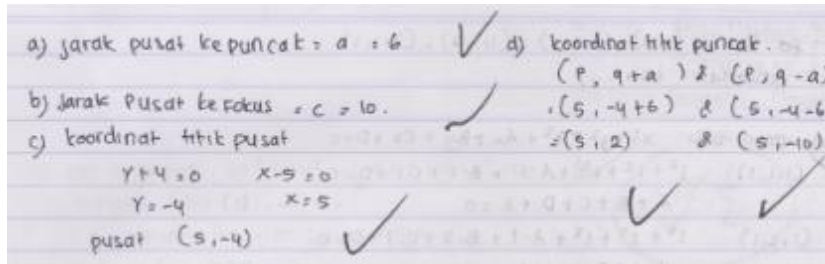 a) jarak pusat ke puncak = a = 6
b) Jarak Pusat ke Fokus = c = 10.
c) koordinat titik pusat
Y+4=0 X-5=0
Y=-4 X=5
pusat (5,-4)
d) koordinat titik puncak.
(P, q+a) & (P, q-a)
=(5, -4+6) & (5, -4-6
=(5, 2) & (5, -10)